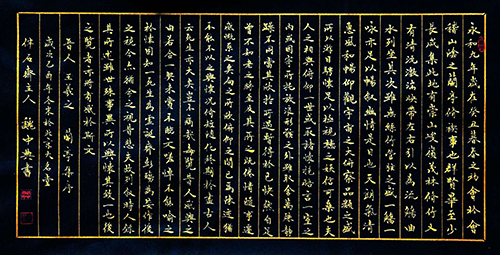 永和九年歲在癸丑暮春之初於會
稽山陰之蘭亭修禊事也群賢畢至少
長咸集此地有崇山峻嶺茂林修竹又
有清流激湍映帶左右引以為流觴曲
水列坐其次雖無絲竹管弦之盛一觴一
詠亦足以暢敘幽情是日也天朗氣清
惠風和暢仰觀宇宙之大俯察品類之盛
所以遊目騁懷足以極視聽之娛信可樂也夫
人之相與俯仰一世或取諸懷抱悟言一室之
內或因寄所託放浪形骸之外雖取舍萬殊靜
躁不同當其欣於所遇暫得於己快然自足
曾不知老之將至及其所之既倦情隨事遷
感慨係之矣向之所欣俯仰之間已為陳跡猶
不能不以之興懷況修短隨化終期於盡古人
云死生亦大矣豈不痛哉每覽昔人興感之
由若合一契未嘗不臨文嗟悼不能喻之
於懷固知一死生為虛誕齊彭殤為妄作後
之視今亦猶今之視昔悲夫故列敘時人錄
其所述雖世殊事異所以興懷其致一也後
之覽者亦將有感於斯文
晉人 王羲之 蘭亭集序
歲次己酉年冬末於北京大名堂
伴石齋主人 魏中興書